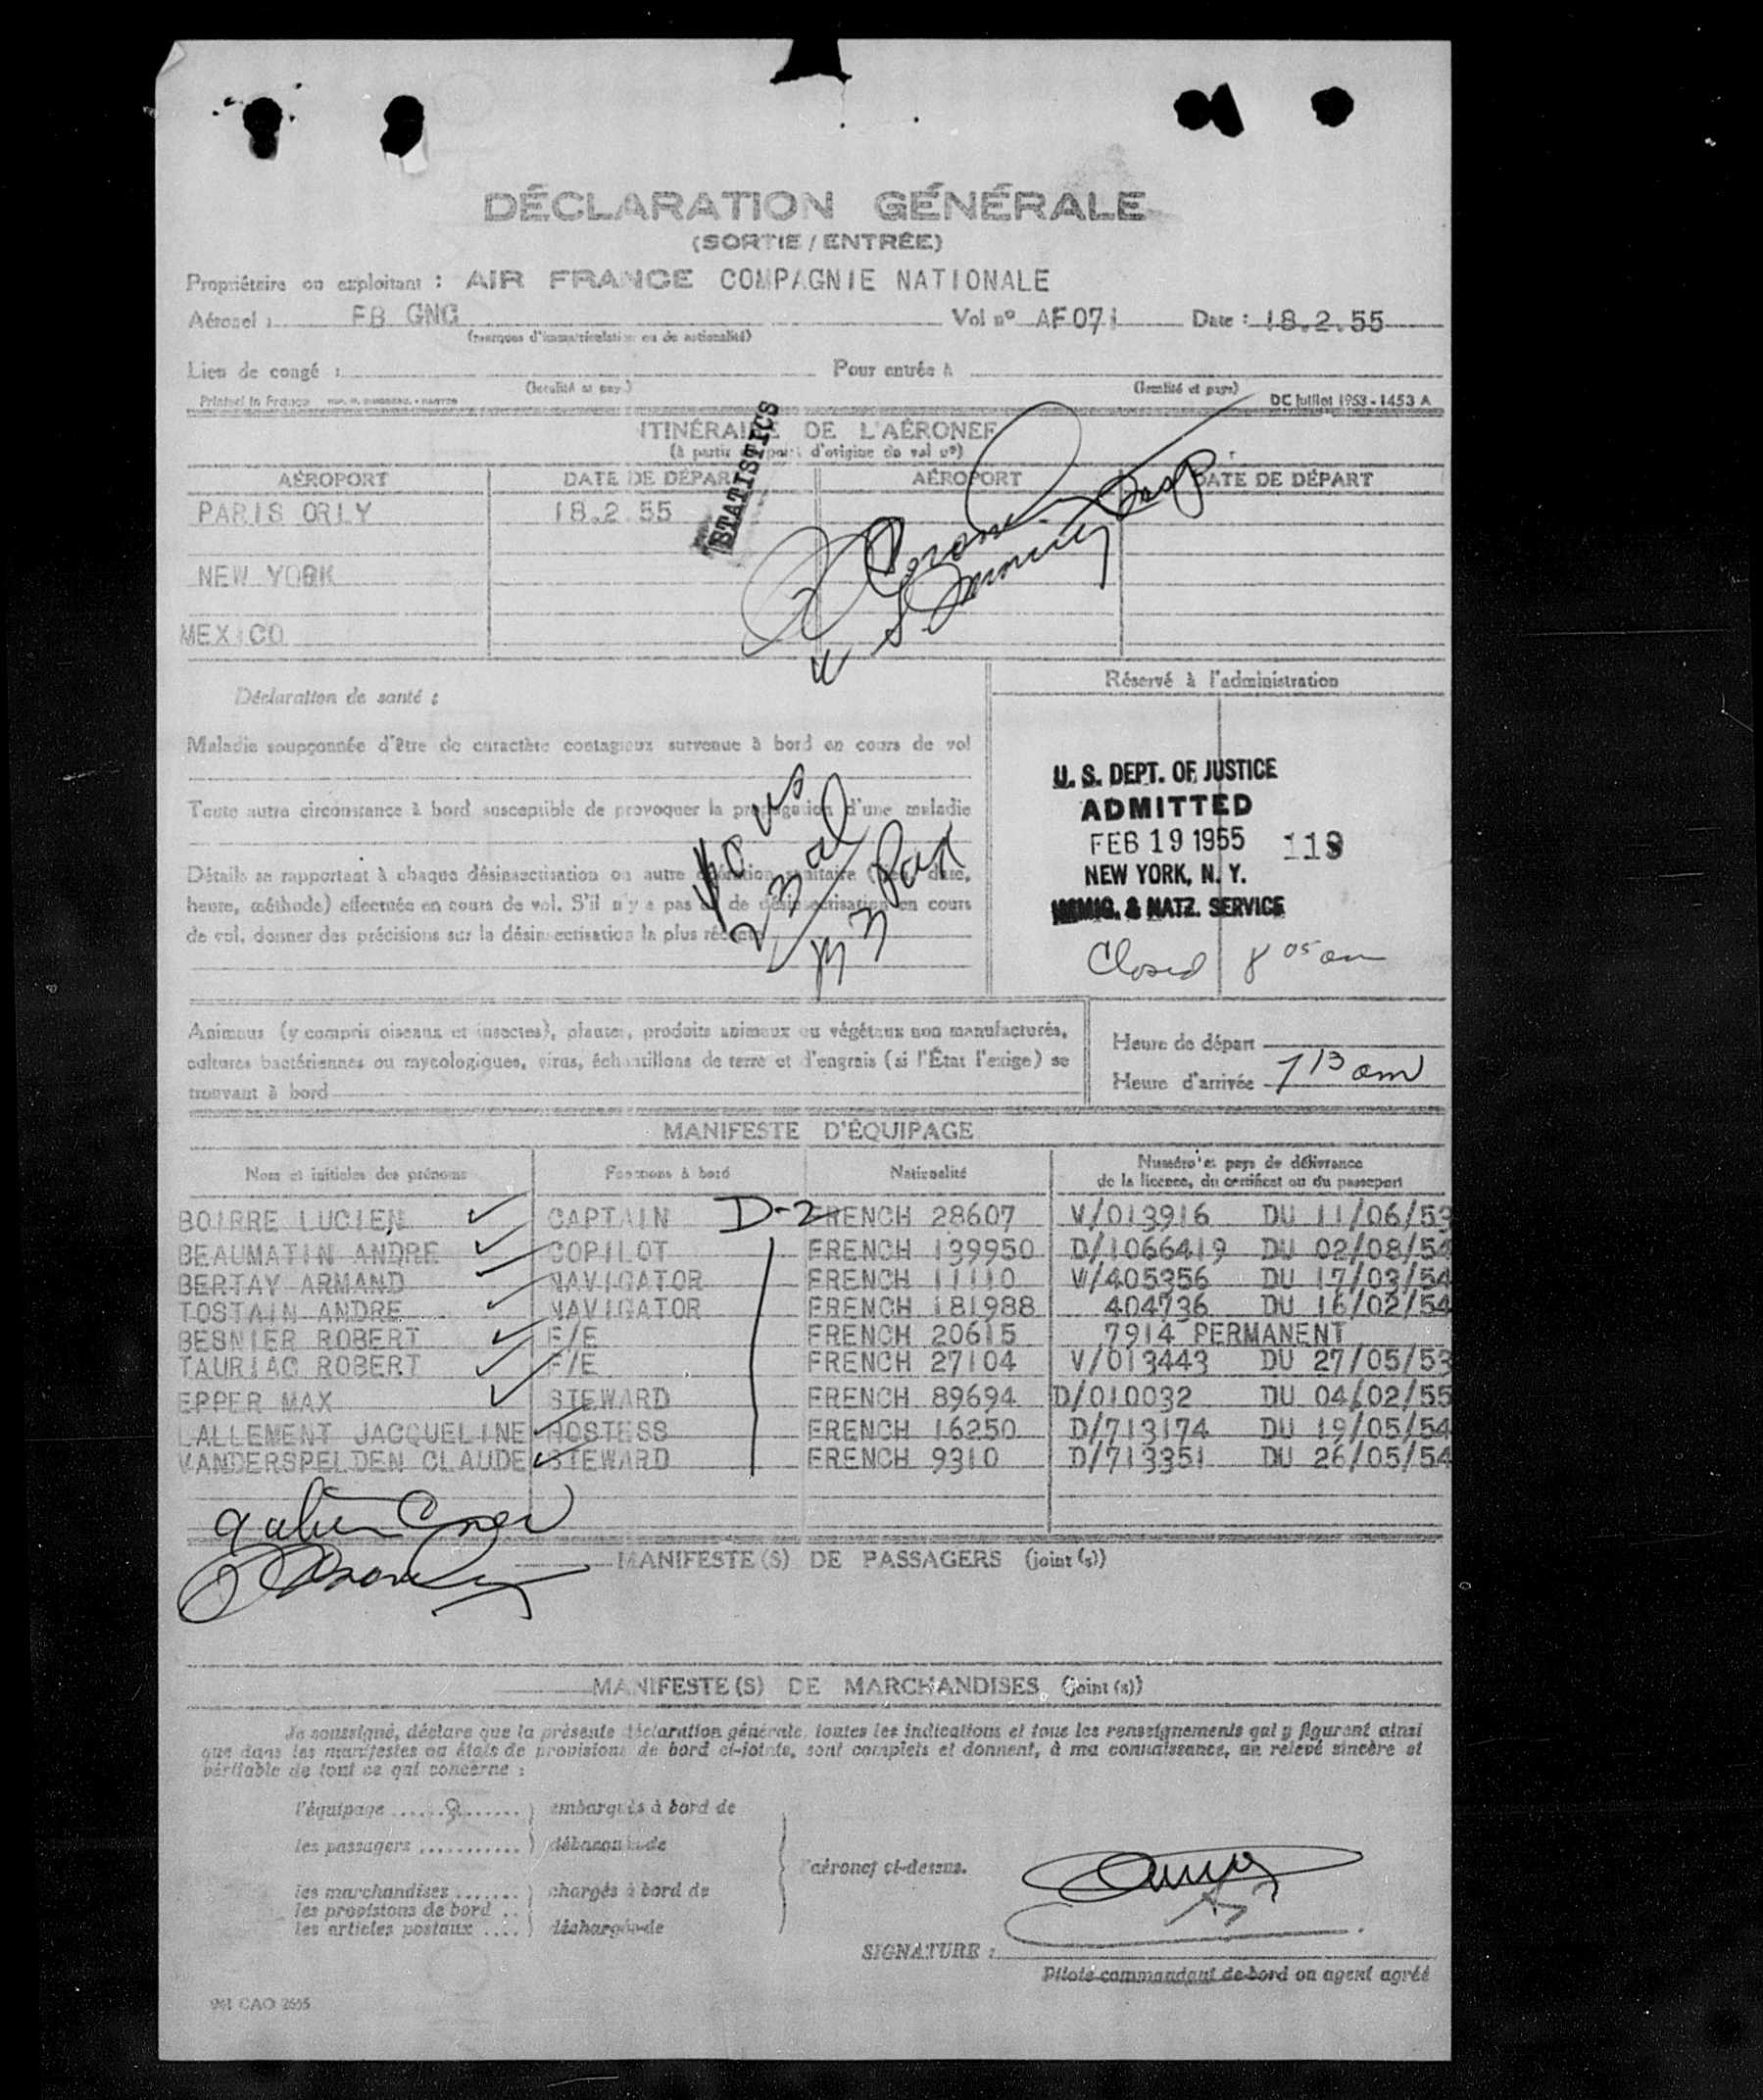 DÉCLARATION GÉNÉRALE
(SORTIE / ENTRÉE)
Propriétaire ou exploitant : AIR FRANCE COMPAGNIE NATIONALE
Aéronef : FB GNG Vol nº AF071 Date : 18.2.55
(marques d'immatriculation ou de nationalité)
Lieu de congé : Pour entrée à
(localité et pays) (localité et pays)
Printed in France DC Juillet 1953 - 1453 A
STATISTICS
ITINÉRAIRE DE L'AÉRONEF
(à partir point d'origine du vol nº)
AÉROPORT DATE DE DÉPART AÉROPORT DATE DE DÉPART
PARIS ORLY 18.2.55
NEW YORK
MEXICO
Déclaration de santé : Réservé à l'administration
Maladie soupçonnée d'être de caractère contagieux survenue à bord en cours de vol
Toute autre circonstance à bord susceptible de provoquer la propagation d'une maladie
Détails se rapportant à chaque désinsectisation ou autre opération sanitaire (lieu, date,
heure, méthode) effectuée en cours de vol. S'il n'y a pas eu de désinsectisation en cours
de vol, donner des précisions sur la désinsectisation la plus récente
U. S. DEPT. OF JUSTICE
ADMITTED
FEB 19 1955 119
NEW YORK, N. Y.
IMMIG. & NATZ. SERVICE
Closed 8 05 am
Animaux (y compris oiseaux et insectes), plantes, produits animaux ou végétaux non manufacturés,
cultures bactériennes ou mycologiques, virus, échantillons de terre et d'engrais (si l'État l'exige) se
trouvant à bord
Heure de départ
Heure d'arrivée 7 13 am
MANIFESTE D'ÉQUIPAGE
Nom et initiales des prénoms Fonctions à bord Nationalité Numéro et pays de délivrance
de la licence, du certificat ou du passeport
BOIRRE LUCIEN CAPTAIN D-2 FRENCH 28607 V/013916 DU 11/06/53
BEAUMATIN ANDRE COPILOT FRENCH 139950 D/1066419 DU 02/08/54
BERTAY ARMAND NAVIGATOR FRENCH 11110 W/405356 DU 17/03/54
TOSTAIN ANDRE NAVIGATOR FRENCH 181988 404736 DU 16/02/54
BESNIER ROBERT F/E FRENCH 20615 7914 PERMANENT
TAURIAC ROBERT F/E FRENCH 27104 V/013443 DU 27/05/53
EPPER MAX STEWARD FRENCH 89694 D/010032 DU 04/02/55
LALLEMENT JACQUELINE HOSTESS FRENCH 16250 D/713174 DU 19/05/54
VANDERSPELDEN CLAUDE STEWARD FRENCH 9310 D/713351 DU 26/05/54
MANIFESTE(S) DE PASSAGERS (joint(s))
MANIFESTE(S) DE MARCHANDISES (joint(s))
Je soussigné, déclare que la présente déclaration générale, toutes les indications et tous les renseignements qui y figurent ainsi
que dans les manifestes ou états de provisions de bord ci-joints, sont complets et donnent, à ma connaissance, un relevé sincère et
véritable de tout ce qui concerne :
l'équipage ......9...... ) embarqués à bord de
les passagers ........... ) débarqués de
l'aéronef ci-dessus.
les marchandises ....... ) chargés à bord de
les provisions de bord ..
les articles postaux .... ) déchargés de
SIGNATURE :
Pilote commandant de bord ou agent agréé